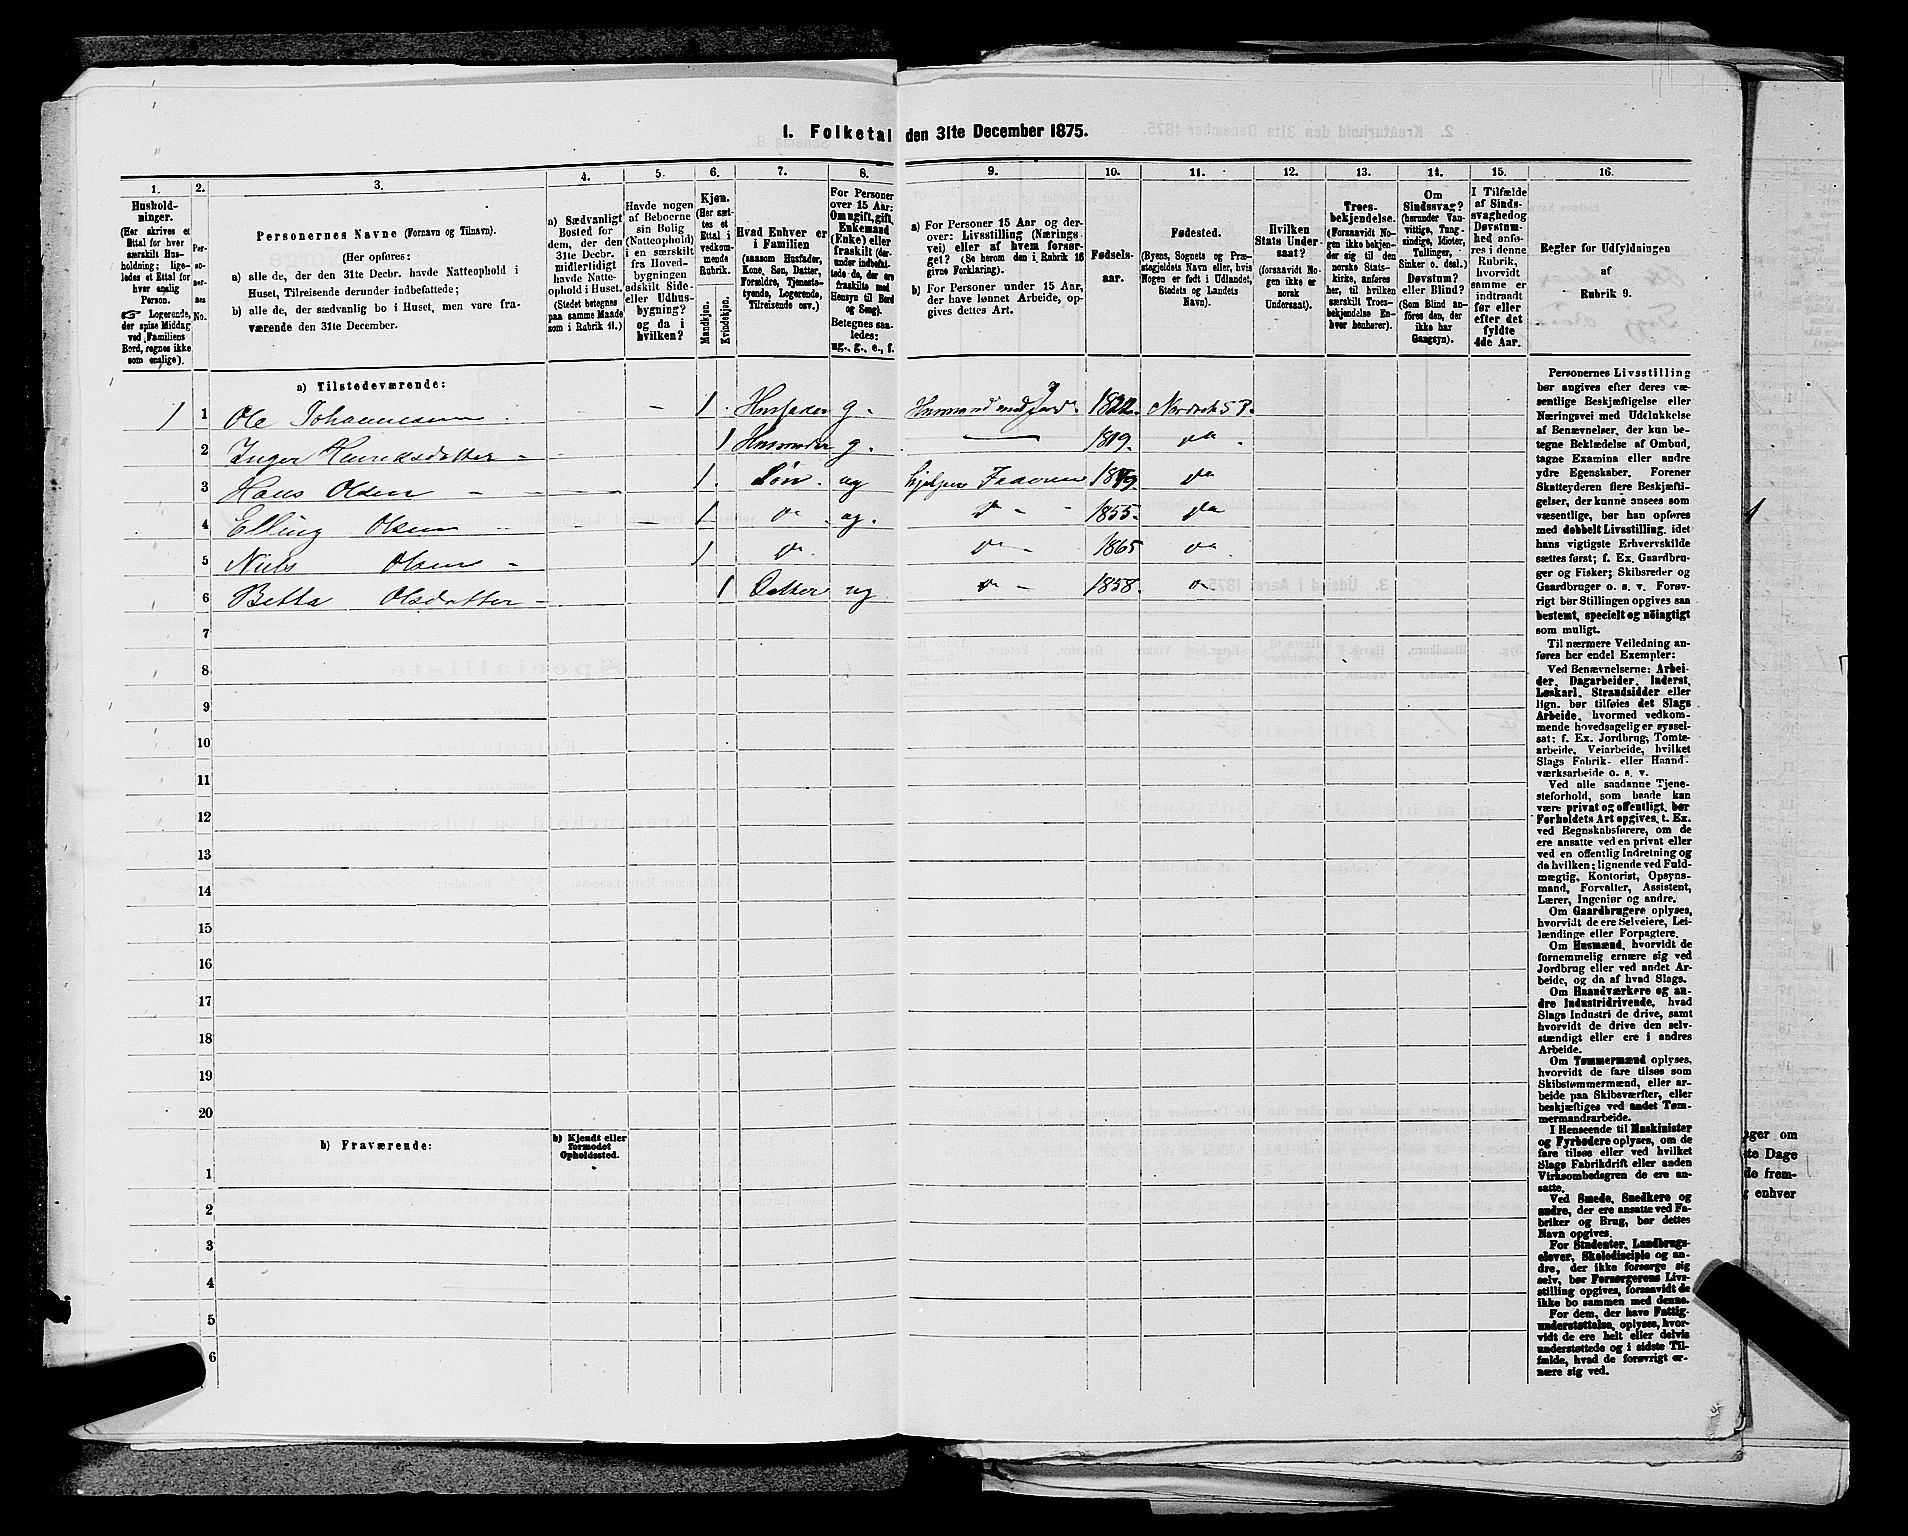 1. Folketal den 31te December 1875.
1. 2. 3. 4. 5. 6. 7. 8. 9. 10. 11. 12. 13. 14. 15. 16.
Hushold-
ninger.
(Her skrives et
Ettal for hver
særskilt Hus-
holdning; lige-
ledes et Ettal for
hver enslig
Person.
☞ Logerende,
der spise Middag
ved Familiens
Bord, regnes ikke
som enslige).
Per-
so-
ner-
nes
No.
Personernes Navne (Fornavn og Tilnavn).
(Her opføres:
a) alle de, der den 31te Decbr. havde Natteophold i
Huset, Tilreisende derunder indbefattede;
b) alle de, der sædvanlig bo i Huset, men vare fra-
værende den 31te December.
a) Sædvanligt
Bosted for
dem, der den
31te Decbr.
midlertidigt
havde Natte-
ophold i Huset.
(Stedet betegnes
paa samme Maade
som i Rubrik 11.)
Havde nogen
af Beboerne
sin Bolig
(Natteophold)
i en særskilt
fra Hoved-
bygningen
adskilt Side-
eller Udhus-
bygning?
og da i
hvilken?
Kjøn.
(Her sæt-
tes et
Ettal i
vedkom-
mende
Rubrik.
Mandkjøn.
Kvindekjøn.
Hvad Enhver er
i Familien
(saasom Husfader,
Kone, Søn, Datter,
Forældre, Tjenest-
tyende, Logerende,
Tilreisende osv.)
For Personer
over 15 Aar:
Om ugift, gift,
Enkemand
(Enke) eller
fraskilt (der-
under indbefat-
tede de, der ere
fraskilte med
Hensyn til Bord
og Seng).
Betegnes saa-
ledes:
ug., g., e., f.
a) For Personer 15 Aar og der-
over: Livsstilling (Nærings-
vei) eller af hvem forsør-
get? (Se herom den i Rubrik 16
givne Forklaring).
b) For Personer under 15 Aar,
der have lønnet Arbeide, op-
gives dettes Art.
Fødsels-
aar.
Fødested.
(Byens, Sognets og Præ-
stegjeldets Navn eller, hvis
Nogen er født i Udlandet,
Stedets og Landets
Navn).
Hvilken
Stats Under-
saat?
(forsaavidt No-
gen ikke er
norsk
Undersaat).
Troes-
bekjendelse.
(Forsaavidt No-
gen ikke bekjen-
der sig til den
norske Stats-
kirke, anføres
her, til hvilken
særskilt Troes-
bekjendelse En-
hver henhører).
Om
Sindssvag?
(herunder Van-
vittige, Tung-
sindige, Idioter,
Tullinger,
Sinker o. desl.)
Døvstum?
eller Blind?
(Som Blind an-
føres den, der
ikke har
Gangsyn).
I Tilfælde
af Sinds-
svaghed og
Døvstum-
hed anfø-
res i denne
Rubrik,
hvorvidt
samme er
indtraadt
før eller
efter det
fyldte
4de Aar.
Regler for Udfyldningen
af
Rubrik 9.
a) Tilstedeværende:
1 1 Ole Johannesen 1 Husfader g. Husmand med Jord 1822. Nordvik S P.
2 Inger Henriksdatter 1 Husmoder g. 1819. da
3 Hans Olsen 1 Søn ug hjelper Faderen 1849. da
4 Elling Olsen 1 do ug. do 1855. da
5 Niels Olsen 1 do do 1865 da
6 Betta Olsdatter 1 Datter ug do 1858. do
7
8
9
10
11
12
13
14
15
16
17
18
19
20
b) Fraværende:
b) Kjendt eller
formodet
Opholdssted.
1
2
3
4
5
6
Personernes Livsstilling
bør angives efter deres væ-
sentlige Beskjæftigelse eller
Næringsvei med Udelukkelse
af Benævnelser, der kun be-
tegne Beklædelse af Ombud,
tagne Examina eller andre
ydre Egenskaber. Forener
Skatteyderen flere Beskjæfti-
gelser, der kunne ansees som
væsentlige, bør han opføres
med dobbelt Livsstilling, idet
hans vigtigste Erhvervskilde
sættes først; f. Ex. Gaardbru-
ger og Fisker; Skibsreder og
Gaardbruger o. s. v. Forøv-
rigt bør Stillingen opgives saa
bestemt, specielt og nøiagtigt
som muligt.
Til nærmere Veiledning an-
føres her endel Exempler:
Ved Benævnelserne: Arbei-
der, Dagarbeider, Inderst,
Løskarl, Strandsidder eller
lign. bør tilføies det Slags
Arbeide, hvormed vedkom-
mende hovedsagelig er syssel-
sat; f. Ex. Jordbrug, Tomte-
arbeide, Veiarbeide, hvilket
Slags Fabrik- eller Haand-
værksarbeide o. s. v.
Ved alle saadanne Tjene-
steforhold, som baade kan
være privat og offentligt, bør
Forholdets Art opgives, t. Ex.
ved Regnskabsførere, om de
ere ansatte ved en privat eller
ved en offentlig Indretning og
da hvilken; lignende ved Fuld-
mægtig, Kontorist, Opsyns-
mand, Forvalter, Assistent,
Lærer, Ingeniør og andre.
Om Gaardbrugere oplyses,
hvorvidt de ere Selveiere, Lei-
lændinge eller Forpagtere.
Om Husmænd, hvorvidt de
fornemmelig ernære sig ved
Jordbrug eller ved andet Ar-
beide, og da af hvad Slags.
Om Haandværkere og an-
dre Industridrivende, hvad
Slags Industri de drive, samt
hvorvidt de drive den selv-
stændigt eller ere i andres
Arbeide.
Om Tømmermænd oplyses,
hvorvidt de fare tilsøs som
Skibstømmermænd, eller ar-
beide paa Skibsværfter, eller
beskjæftiges ved andet Tøm-
mermandsarbeide.
I Henseende til Maskinister
og Fyrbødere oplyses, om de
fare tilsøs eller ved hvilket
Slags Fabrikdrift eller anden
Virksombedsgren de ere an-
satte.
Ved Smede, Snedkere og
andre, der ere ansatte ved Fa-
briker og Brug, bør dettes
Navn opgives.
For Studenter, Landbrugs-
elever, Skoledisciple og an-
dre, der ikke forsørge sig
selv, bør Forsørgerens Livs-
stilling opgives, forsaavidt de
ikke bo sammen med denne.
For dem, der have Fattig-
understøttelse, oplyses, hvor-
vidt de ere helt eller delvis
understøttede og i sidste Til-
fælde, hvad de forøvrigt er-
nære sig ved.